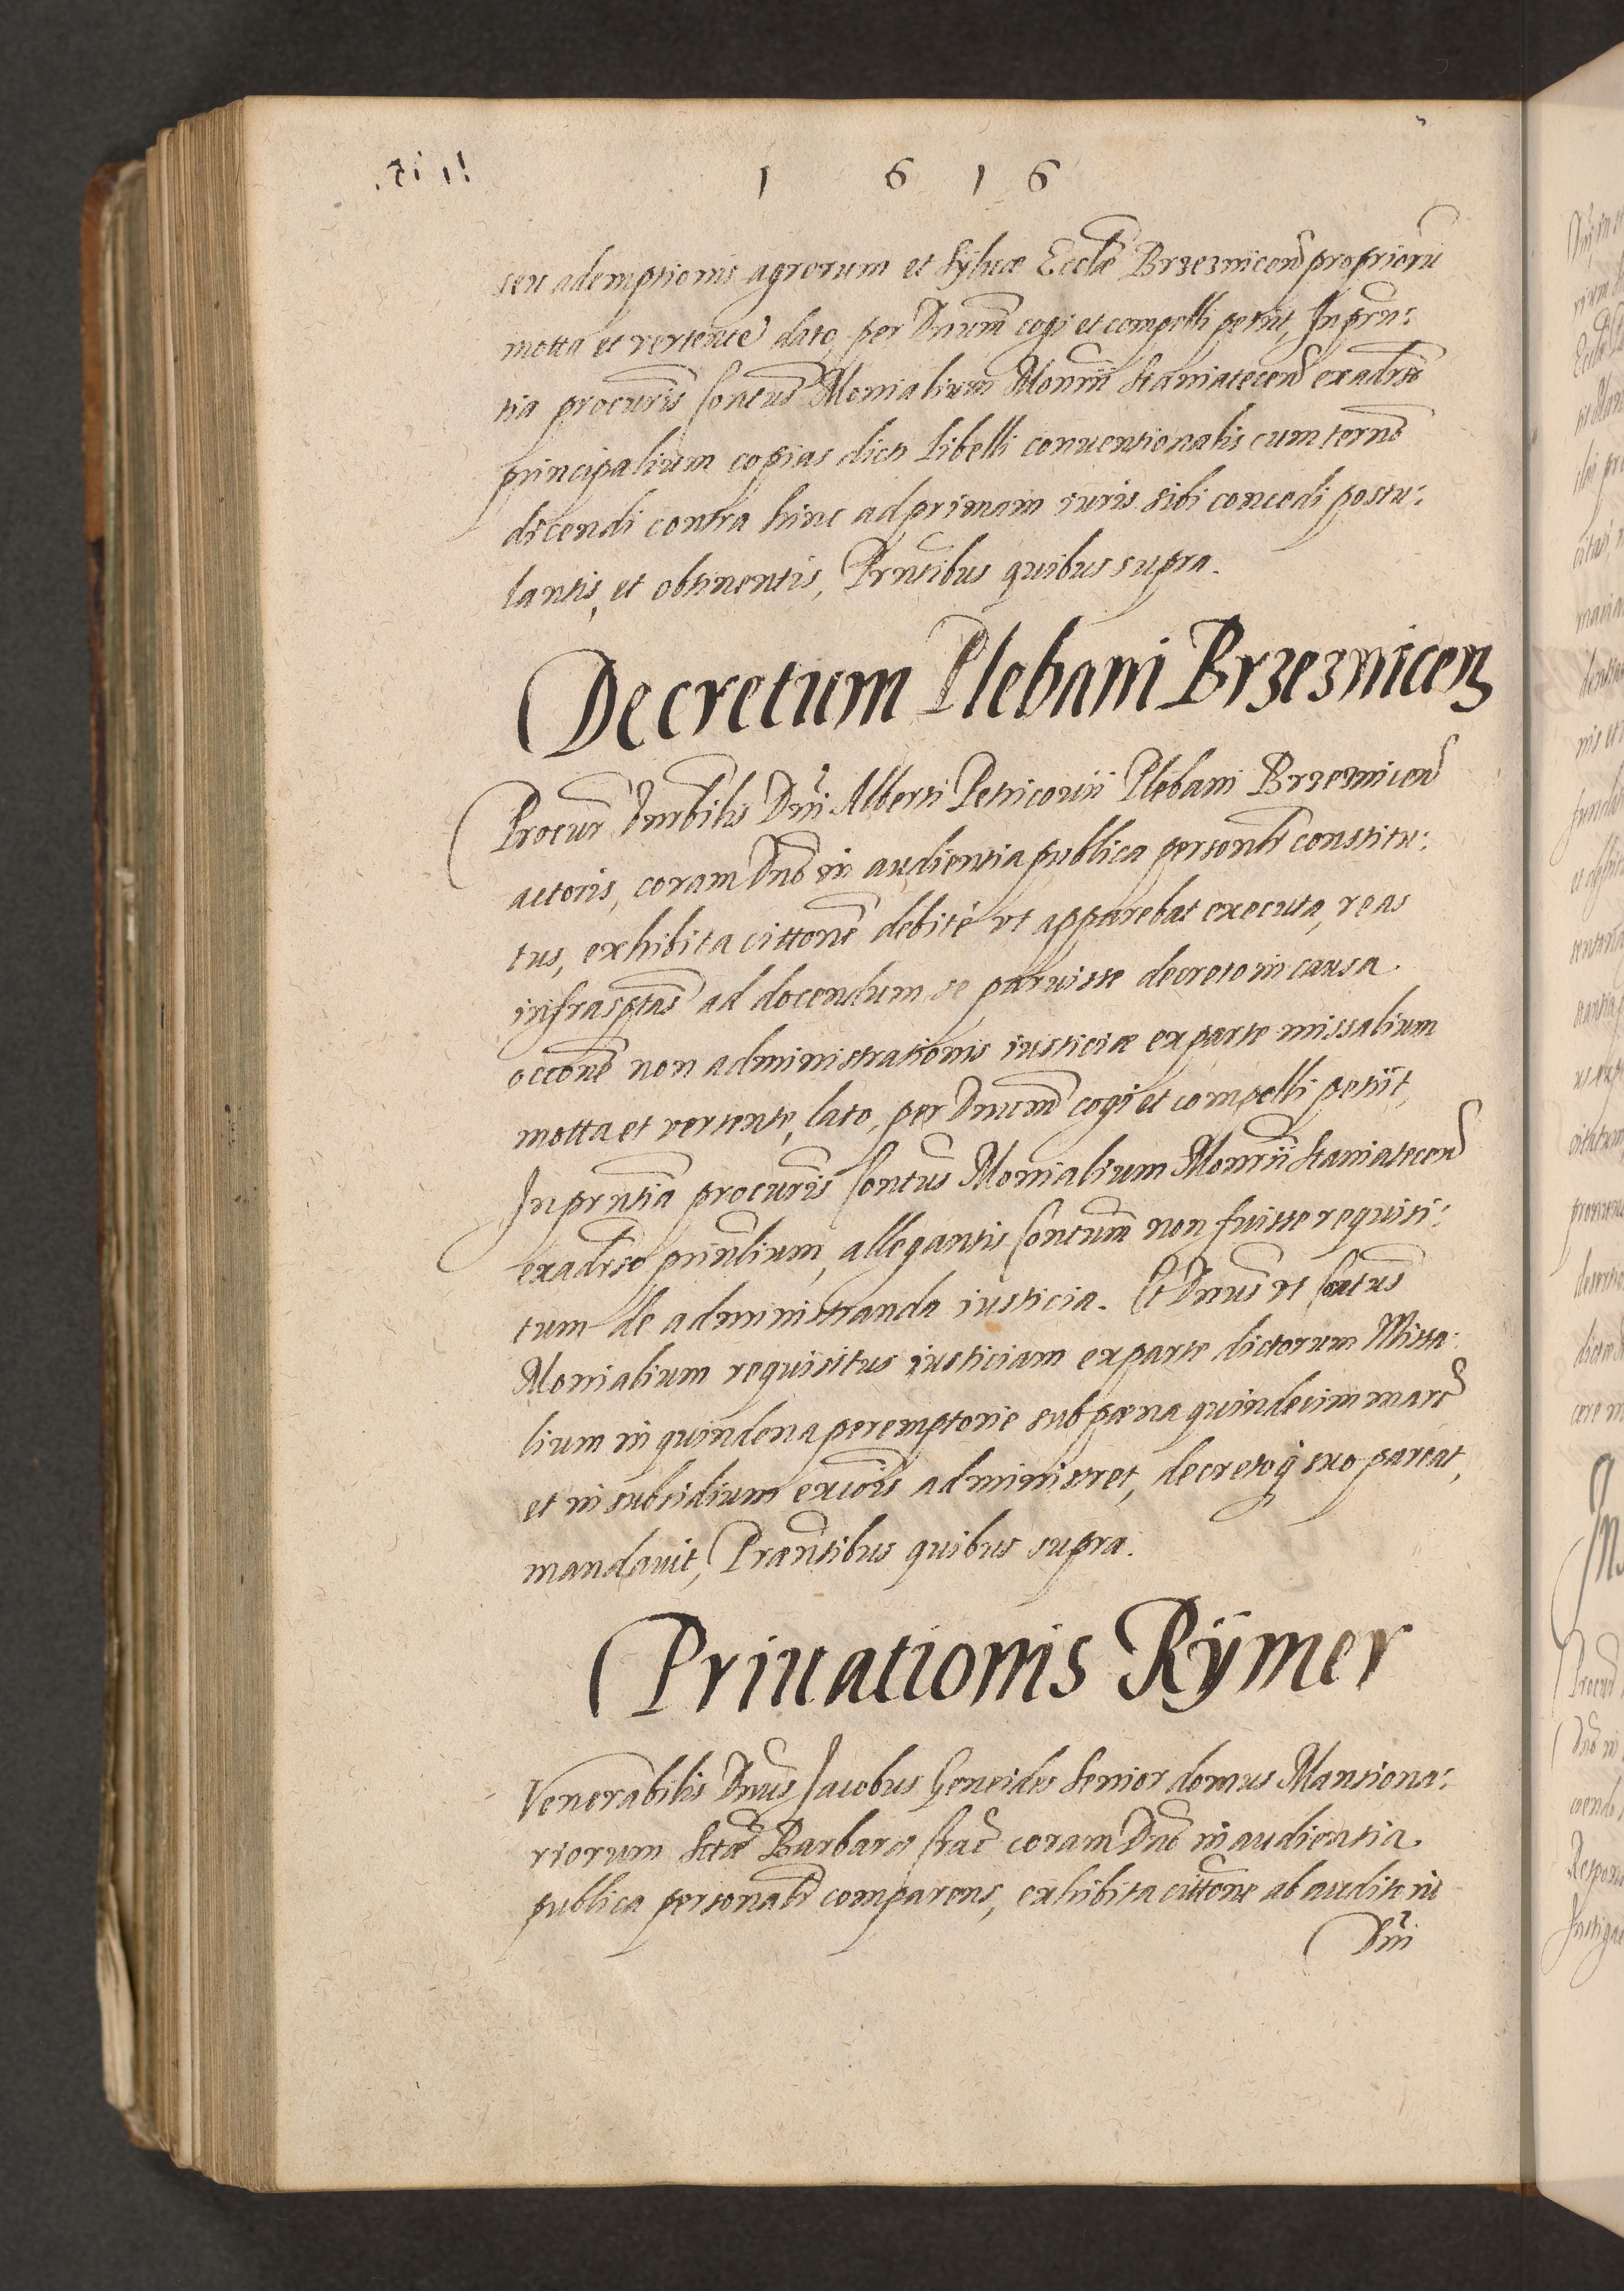 1 6 1 6
seu ademptionis agrorum et sÿluæ Eccłæ Brzeznicen̄ propriorū
motta et vertente dato, per Dnum̄ cogi et compelli petiit, In prn̄:
tia procurīs Contus̄ Monialium Monrii Staniatecen̄ ex aduso
principalium copias dicti libelli conuentionalis cum termo
dicendi contra hinc ad primam iuris sibi concedi postu:
lantis, et obtinentis, Prntibus quibus supra.
Decretum Plebani Brzeznicen
Procur̄ Dni Alberti Petricouii Plebani Brzeznicen̄
actoris, coram Dno in audientia publica personłr constitu:
tus, exhibita cittone debitè vt apparebat executa, reas
infrasptas ad docendum se paruisse decreto in causa
occone non administrationis iusticiæ ex parte missalium
motta et vertente, lato, per Dnum̄ cogi et compelli petiit,
In prntia procurīs Contus̄ Monialium Monrii Staniatecen̄
ex aduso prinlium, allegantis Contum̄ non fuisse requisi:
tum de administranda iusticia. Et Dnus vt Contus
Monialium requisitus iusticiam ex parte dictorum Missa:
lium in quindena peremptorie sub pæna quindecim marc̄
et in subsidium excōis administret, decretoq̨ suo pareat,
mandauit, Præntibus quibus supra.
Priuationis Rÿmer
Venerabilis Dnus Jacobus Geneides Senior domus Mansiona:
riorum Sctæ Barbaræ Crac̄ coram Dno in audientia
publica personałr comparens, exhibita cittone ab auditorio
Dni